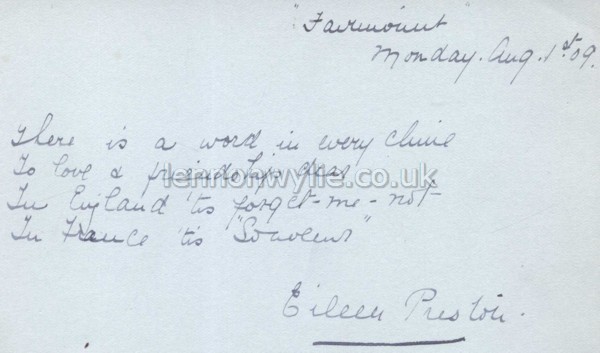 "Fairmount"
Monday. Aug. 1st 09.
There is a word in every clime
To love & friendship dear
lennonwylie.co.uk
In England 'tis forget-me-not
In France 'tis "Souvenir"
Eileen Preston.